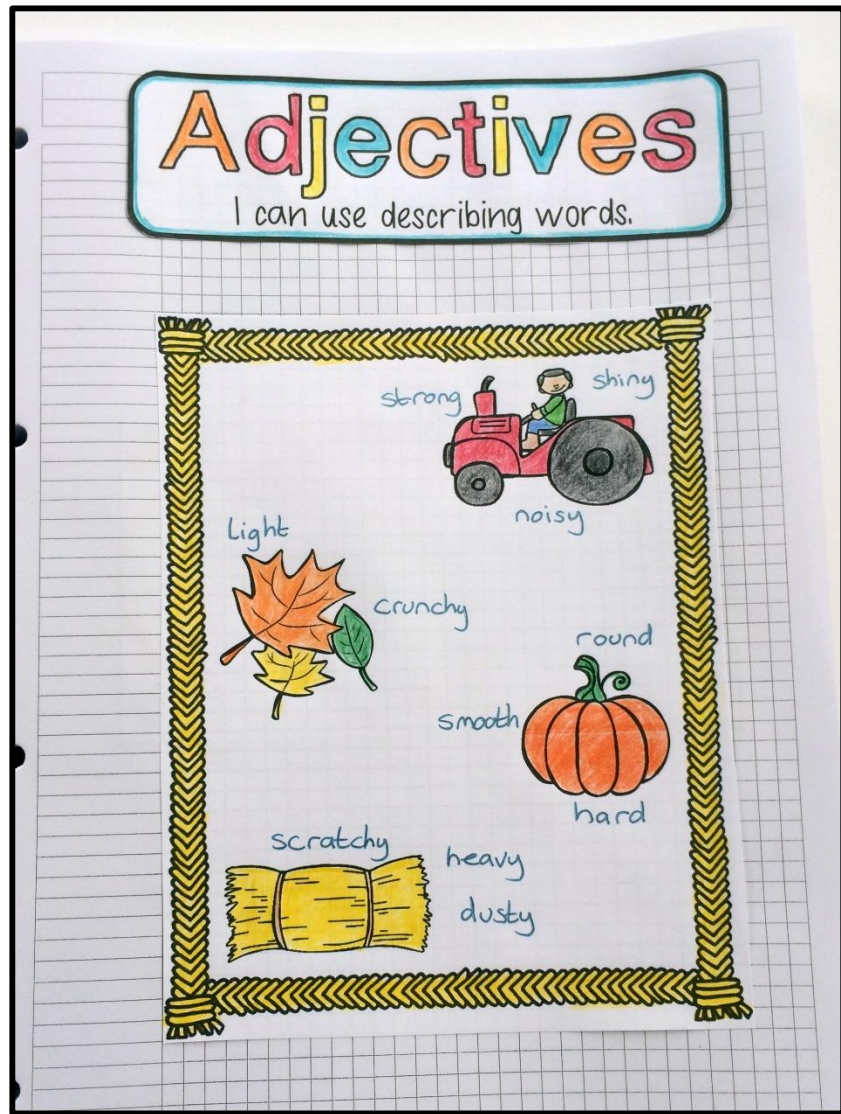 Adjectives
I can use describing words.
strong
shiny
noisy
light
crunchy
round
smooth
hard
scratchy
heavy
dusty